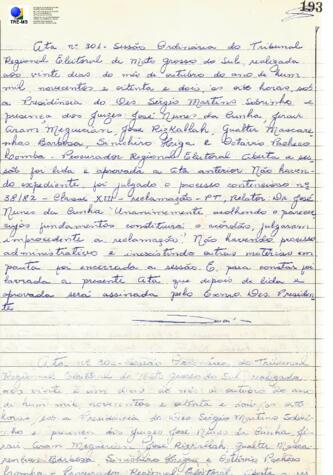 TRE-MS
193
Ata nº 301. Sessão Ordinária do Tribunal
Regional Eleitoral de Mato Grosso do Sul, realizada
aos vinte dias do mês de outubro do ano de hum
mil, novecentos e oitenta e dois, às oito horas, sob
a Presidência do Des Sérgio Martins Sobrinho e
presença dos Juízes José Nunes da Cunha,
Aram Meguerian, José Rizkallah, Gualter Mascare
nhas Barbosa, Higa e Octávio Pacheco
Lomba. Procurador Regional Eleitoral Aberta a ses
são foi lida e aprovada a ata anterior Não haven
do expediente, foi julgado o processo contencioso nº
38/82 - Classe XIII - reclamação - PT, Relator: Dr. José
Nunes da Cunha: Unanimemente acolhendo o parecer
cujos fundamentos constituirá o acórdão, julgaram
improcedente a reclamação. Não havendo processo
administrativo e inexistindo outras matérias em
pauta foi encerrada a sessão. E, para constar foi
lavrada a presente Ata que depois de lida e
aprovada será assinada pelo Exmo Des Presiden
te
Ata nº 302 - Sessão Ordinária do Tribunal
Regional Eleitoral de Mato Grosso do Sul, realizada
aos vinte e um dias do mês de outubro do ano
de hum mil novecentos e oitenta e dois, às oito
horas, sob a Presidência do Des Sérgio Martins Sobri
nho e presença dos Juízes José Nunes da Cunha
Aram Meguerian, José Rizkallah, Gualter Masca
renhas Barbosa, Higa e Octávio Pacheco
Lomba - Procurador Regional Eleitoral. Aberta a